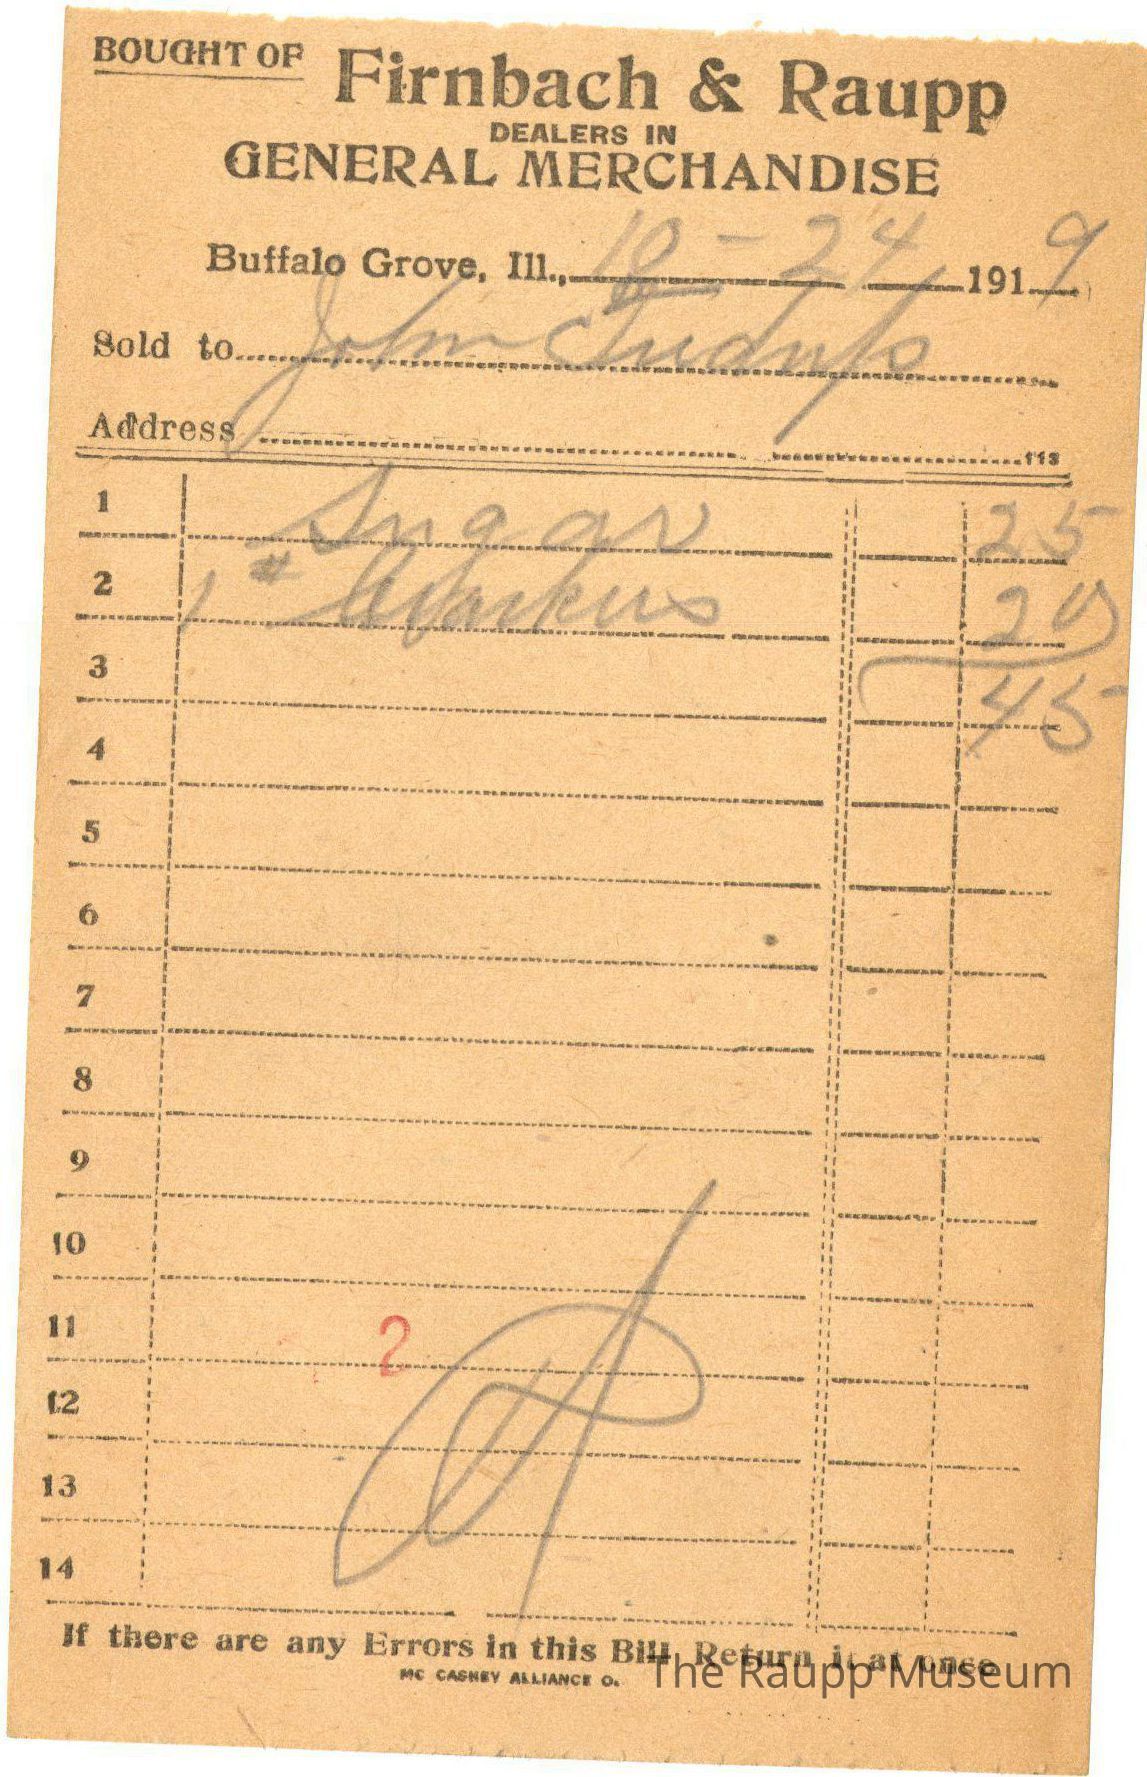 BOUGHT OF Firnbach & Raupp
DEALERS IN
GENERAL MERCHANDISE
Buffalo Grove, Ill., 10 - 24 1919
Sold to John
Address 113
1 Sugar 25
2 1 # 20
3 45
4
5
6
7
8
9
10
11 2
12
13
14
If there are any Errors in this Bill Return it at once
MC CASKEY ALLIANCE O.
The Raupp Museum